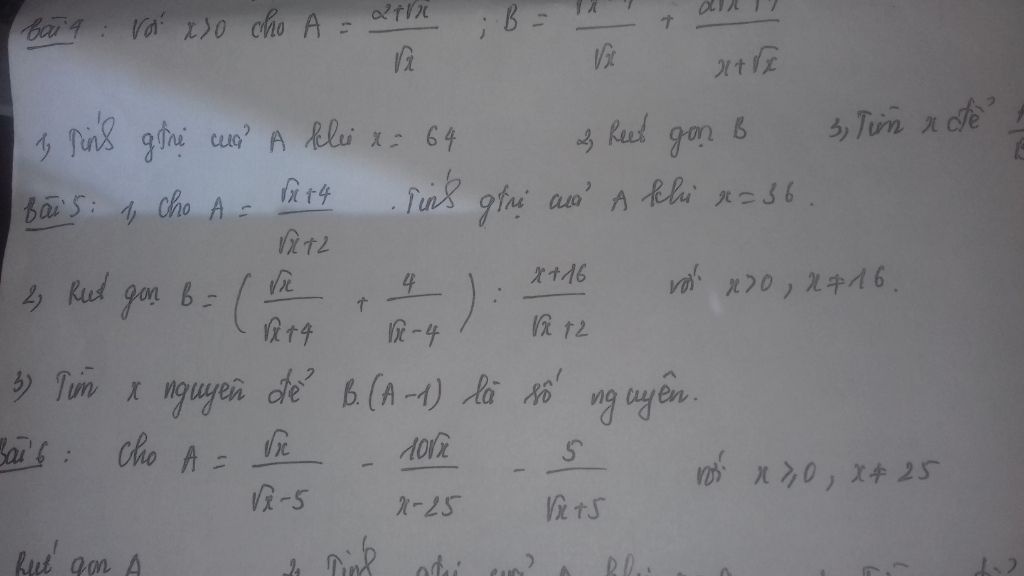 Bài 4 : Với x>0 cho A = (2+√x)/√x ; B = /√x + /(x+√x)
1, Tính gtrị cuả A khi x = 64 2, Rút gọn B 3, Tìm x để
Bài 5 : 1, Cho A = (√x+4)/(√x+2) . Tính gtrị cuả A khi x = 36 .
2, Rút gọn B = ( √x/(√x+4) + 4/(√x-4) ) : (x+16)/(√x+2) với x>0 , x≠16 .
3) Tìm x nguyên để B.(A-1) là số nguyên.
Bài 6 : Cho A = √x/(√x-5) - 10√x/(x-25) - 5/(√x+5) với x≥0 , x≠25
Rút gọn A 2, Tính gtrị cuả A khi